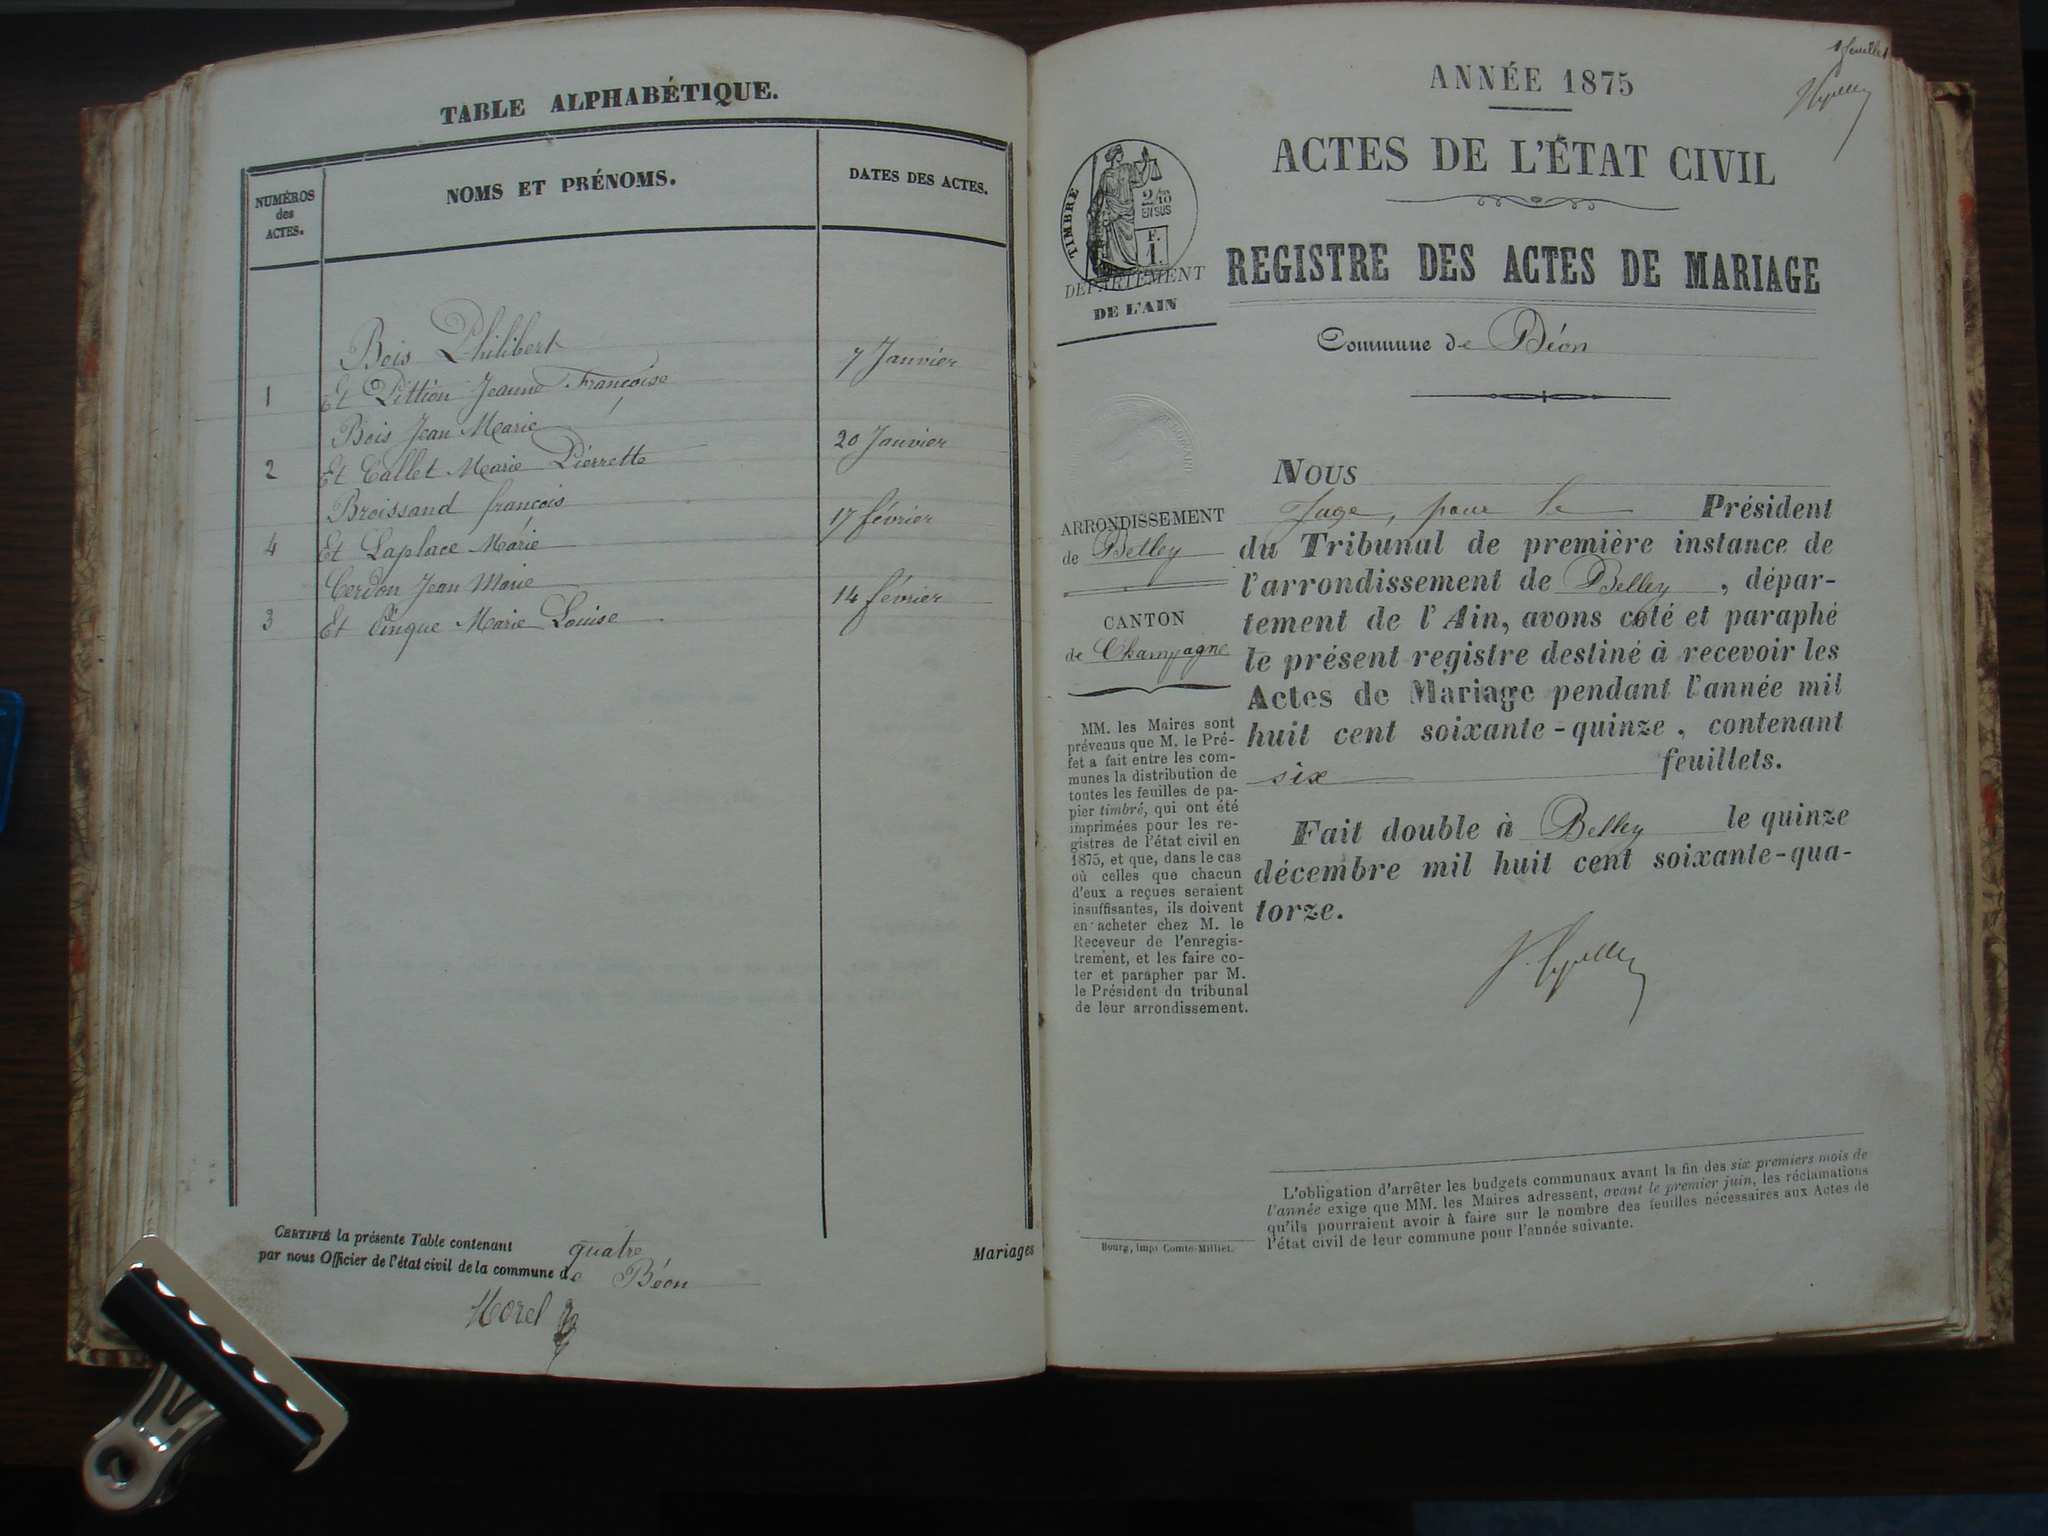 TABLE ALPHABÉTIQUE.
NUMÉROS
des
ACTES.
NOMS ET PRÉNOMS.
DATES DES ACTES.
Bois Philibert
7 Janvier
1 Et Pittion Jeanne Françoise
Bois Jean Marie
20 Janvier
2 Et Callet Marie Pierrette
Broissand françois
17 février
4 Et Laplace Marie
Cerdon Jean Marie
14 février
3 Et Cinque Marie Louise
CERTIFIÉ la présente Table contenant quatre Mariages
par nous Officier de l'état civil de la commune de Béon
Morel
1 feuillet
ANNÉE 1875
ACTES DE L'ÉTAT CIVIL
REGISTRE DES ACTES DE MARIAGE
Commune de Béon
TIMBRE
2/10
EN SUS
F.
1.
DÉPARTEMENT
DE L'AIN
ARRONDISSEMENT
de Belley
CANTON
de Champagne
MM. les Maires sont
prévenus que M. le Pré-
fet a fait entre les com-
munes la distribution de
toutes les feuilles de pa-
pier timbré, qui ont été
imprimées pour les re-
gistres de l'état civil en
1875, et que, dans le cas
où celles que chacun
d'eux a reçues seraient
insuffisantes, ils doivent
en acheter chez M. le
Receveur de l'enregis-
trement, et les faire co-
ter et parapher par M.
le Président du tribunal
de leur arrondissement.
Bourg, imp. Comte-Milliet.
NOUS
Juge, pour le Président
du Tribunal de première instance de
l'arrondissement de Belley, dépar-
tement de l'Ain, avons coté et paraphé
le présent registre destiné à recevoir les
Actes de Mariage pendant l'année mil
huit cent soixante-quinze, contenant
six feuillets.
Fait double à Belley le quinze
décembre mil huit cent soixante-qua-
torze.
L'obligation d'arrêter les budgets communaux avant la fin des six premiers mois de
l'année exige que MM. les Maires adressent, avant le premier juin, les réclamations
qu'ils pourraient avoir à faire sur le nombre des feuilles nécessaires aux Actes de
l'état civil de leur commune pour l'année suivante.